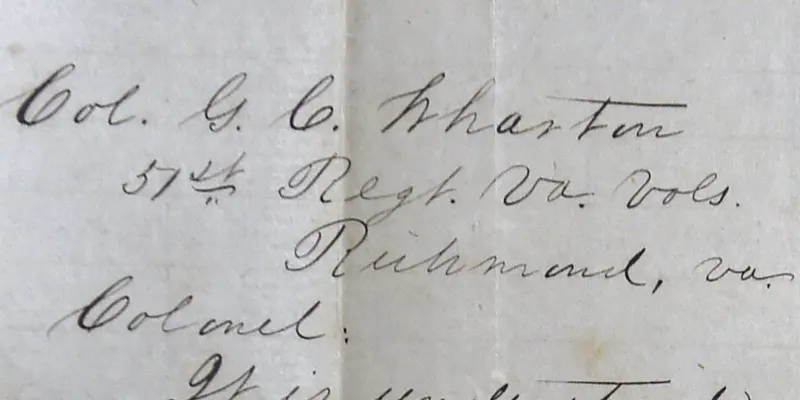 Col. G. C. Wharton
51st Regt. Va. Vols.
Richmond, Va.
Colonel:
It is